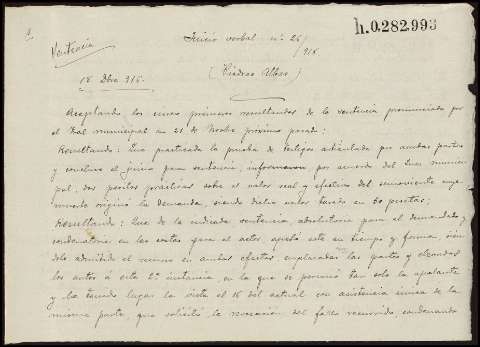 h.0.282.993
Sentencia
Juicio verbal nº 26/
/915
18 Dbre 915.
Aceptando los cinco primeros resultandos de la sentencia pronunciada por
el Tral municipal en 21 de Novbre próximo pasado:
Resultando: Que practicada la prueba de testigos articulada por ambas partes
y concluso el juicio para sentencia, informaron por acuerdo del Juez munici
pal, dos peritos practicos sobre el valor real y efectivo del semoviente cuya
muerte originó la demanda, siendo dicho valor tasado en 60 pesetas;
Resultando: Que de la indicada sentencia, absolutoria para el demandado y
condenatoria en las costas para el actor, apeló este en tiempo y forma, sien
dole admitido el recurso en ambos efectos, emplazadas las partes y elevandose
los autos á esta 2ª instancia, en la que se personó tan solo la apelante
y ha tenido lugar la vista el 16 del actual con asistencia única de la
misma parte, que solicitó la revocación del fallo recurrido, condenando